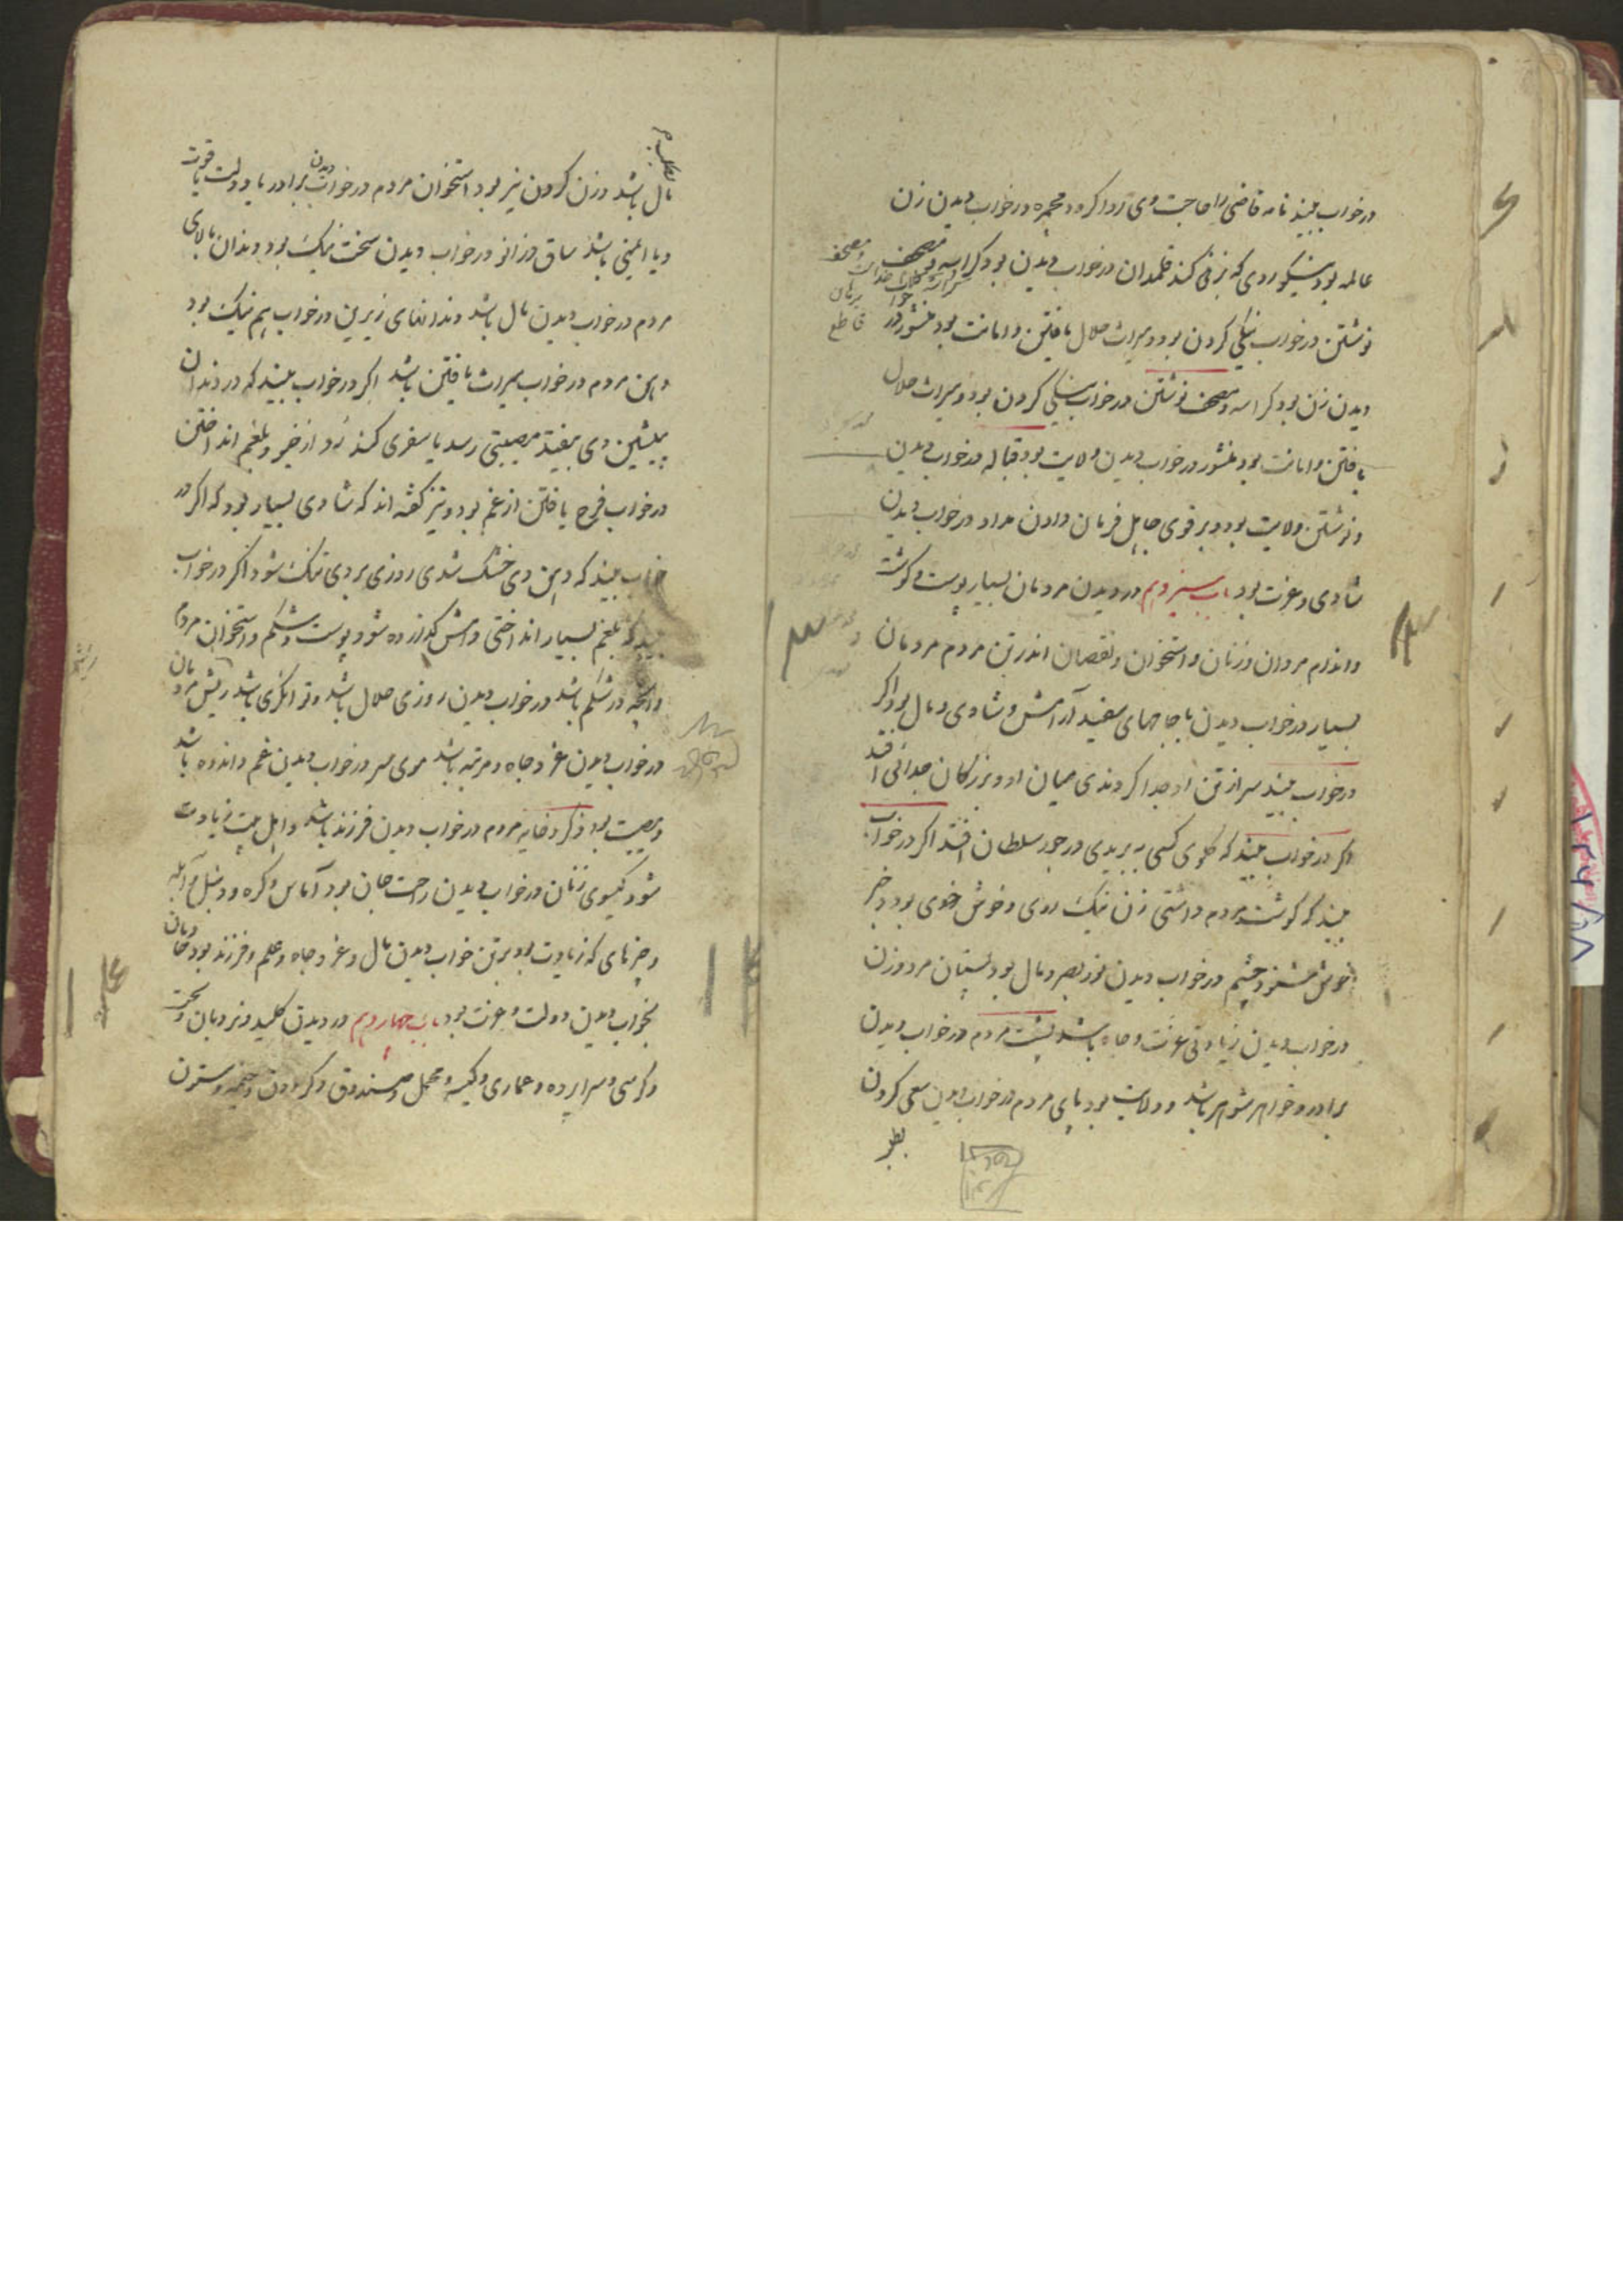 در خواب بیند نامه قاضی را حاجت وی روا کردد محبره در خواب دیدن زن
عالمه بود نیکوروی که بزنی کند قلمدان در خواب دیدن بود کراسه و مصحف
نوشتن در خواب نیکی کردن بود و میراث حلال یافتن و امانت بود منشور در
دیدن زن بود کراسه و مصحف نوشتن در خواب نیکی کردن بود و میراث حلال
یافتن و امانت بود منشور در خواب دیدن ولایت بود قباله در خواب دیدن
و نوشتن ولایت بود و بر قوی جاهل فرمان دادن مداد در خواب دیدن
شادی و عزت بود باب سیزدهم در دیدن مردمان بسیار پوست و کوشت
و اندام مردان و زنان و استخوان و نقصان اندر تن مردم مردمان
بسیار در خواب دیدن با جامهای سفید آرامش و شادی و مال بود اکر
در خواب بیند سر از تن او جدا کردندی میان او و بزرکان جدائی افتد
اکر در خواب بیند که کلوی کسی به بریدی در جور سلطان افتد اکر در خواب
بیند که کوشت مردم داشتی زن نیک روی و خوش خوی بود و خبر
خوش شنود چشم در خواب دیدن نور بصر و مال بود پستان مرد و زن
در خواب دیدن زیادتی عزت و جاه باشد پشت مردم در خواب دیدن
برادر و خواهر شوهر باشد و ولایت بود پای مردم در خواب دیدن سعی کردن
مصحف
برهان
قاطع
مال باشد و زن کردن نیز بود استخوان مردم در خواب دیدن برادر یا دولت یا قوت
و یا ایمنی باشد ساق و زانو در خواب دیدن سخت نیک بود دندان بالای
مردم در خواب دیدن مال باشد و دندانهای زیرین در خواب هم نیک بود
دهن مردم در خواب میراث یافتن باشد اکر در خواب بیند که در دندان
پیشین وی بیفتد مصیبتی رسد یا سفری کند نه و از خیر و بلغم انداختن
در خواب فرح یافتن از غم بود و نیز کفته اند که شادی بسیار بود که اکر در
خواب بیند که دهن وی خشک شدی روزی بر وی تنک شود اکر در خواب
بیند که بلغم بسیار انداختی وامش کذارده شود پوست و شکم و استخوان مردم
و آنچه در شکم باشد در خواب دیدن روزی حلال باشد و توانکری باشد ریش مردمان
در خواب دیدن عز و جاه و مرتبه باشد موی سر در خواب دیدن غم و اندوه باشد
و مصیبت بود ذکر و خایه مردم در خواب دیدن فرزند باشد و اهل بیت زیادت
شود کیسوی زنان در خواب دیدن راحت جان بود آماس و کره و دنبل و آبله
و چیزهای که زیادت بود بر تن خواب دیدن مال و عز و جاه و علم و فرزند بود
بخواب دیدن دولت و عزت بود باب چهاردهم در دیدن کلید و نردبان و تخت
و کرسی و سراپرده و عماری و کیسه و محمل و صندوق و کردون و خیمه و ستون